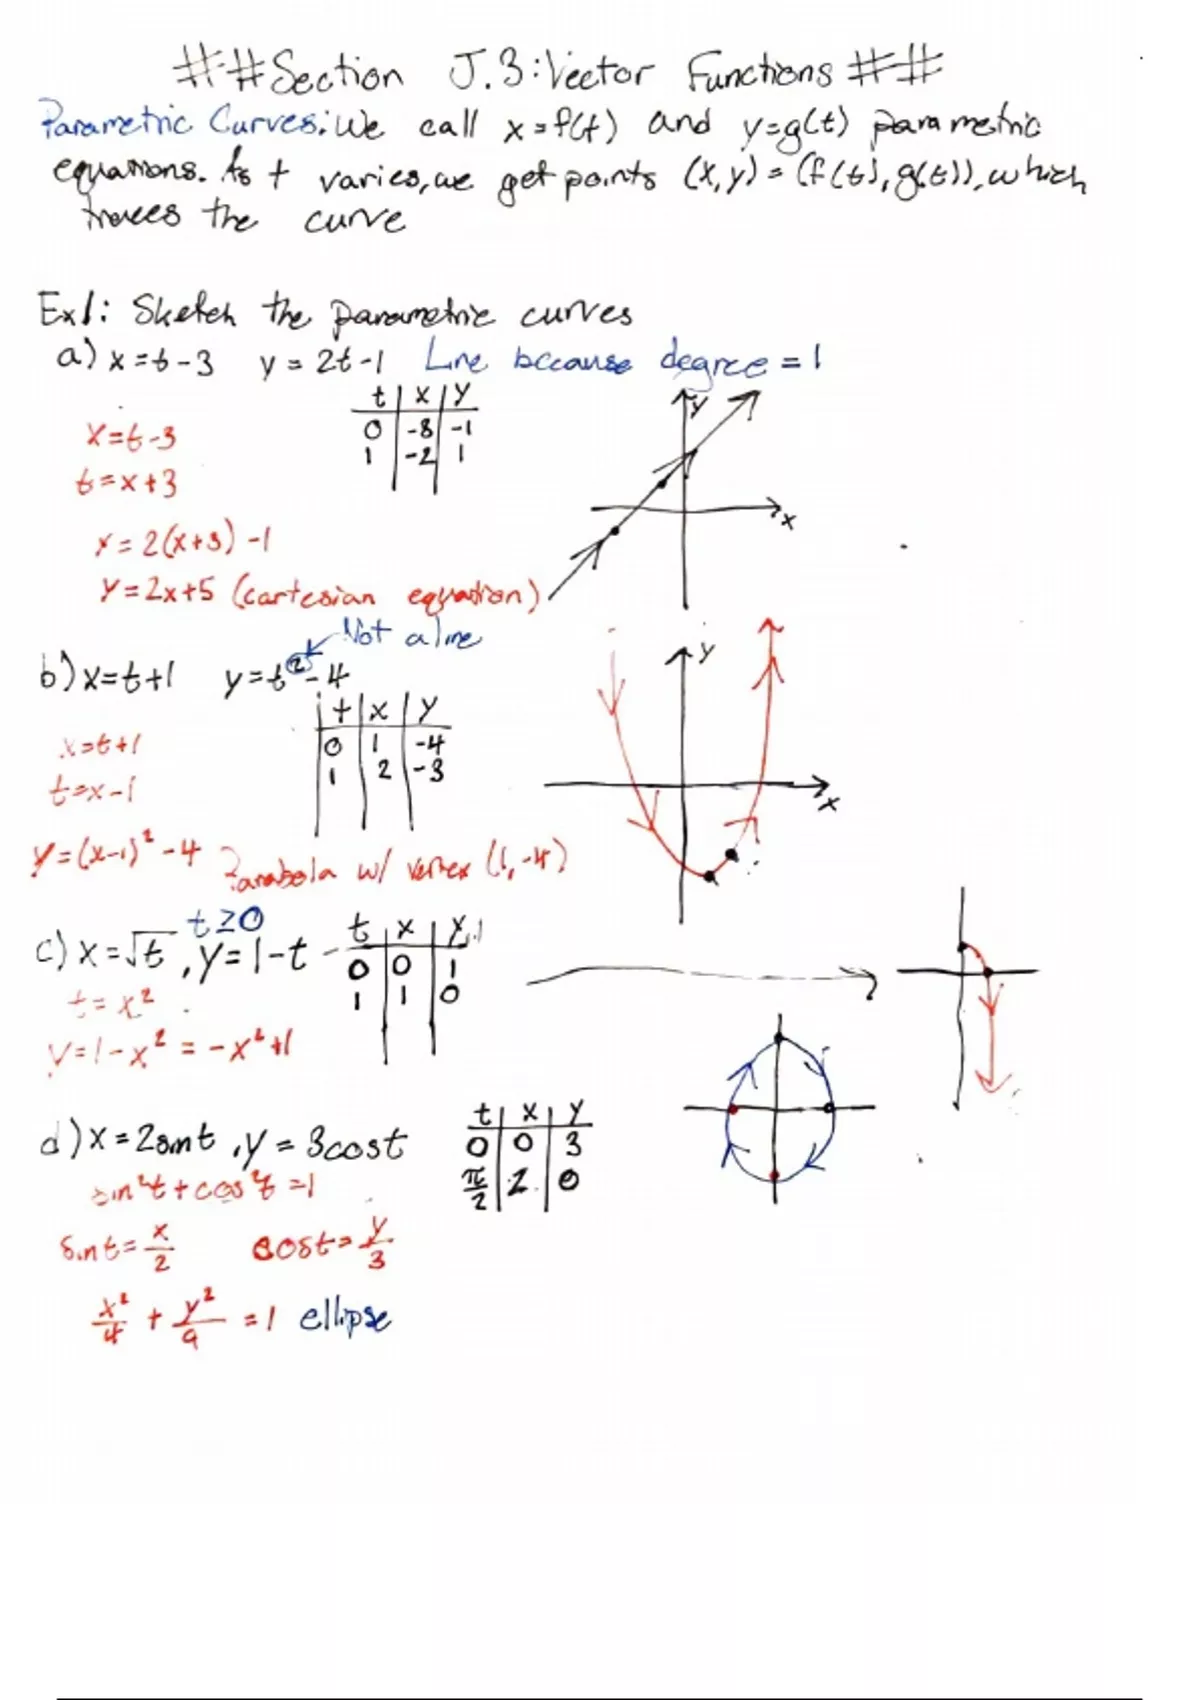 ##Section J.3:Vector Functions ##
Parametric Curves: We call x=f(t) and y=g(t) parametric
equations. As t varies, we get points (x,y)=(f(t),g(t)), which
traces the curve
Ex1: Sketch the parametric curves
a) x=t-3 y=2t-1 Line because degree=1
t x y
0 -8 -1
1 -2 1
x=t-3
t=x+3
y=2(x+3)-1
y=2x+5 (cartesian equation)
y
x
Not a line
b) x=t+1 y=t²-4
t x y
0 1 -4
1 2 -3
x=t+1
t=x-1
y=(x-1)²-4 Parabola w/ vertex (1,-4)
y
x
t≥0
c) x=√t, y=1-t
t x y
0 0 1
1 1 0
t=x²
y=1-x²=-x²+1
d) x=2sint, y=3cost
t x y
0 0 3
π/2 2 0
sin²t+cos²t=1
sint=x/2 cost=y/3
x²/4+y²/9=1 ellipse